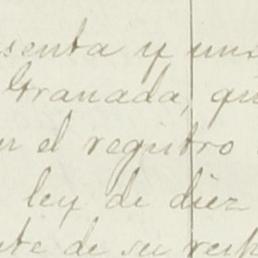 senta y uno
Granada, qu
n el registro
ley de diez
nte de su resp